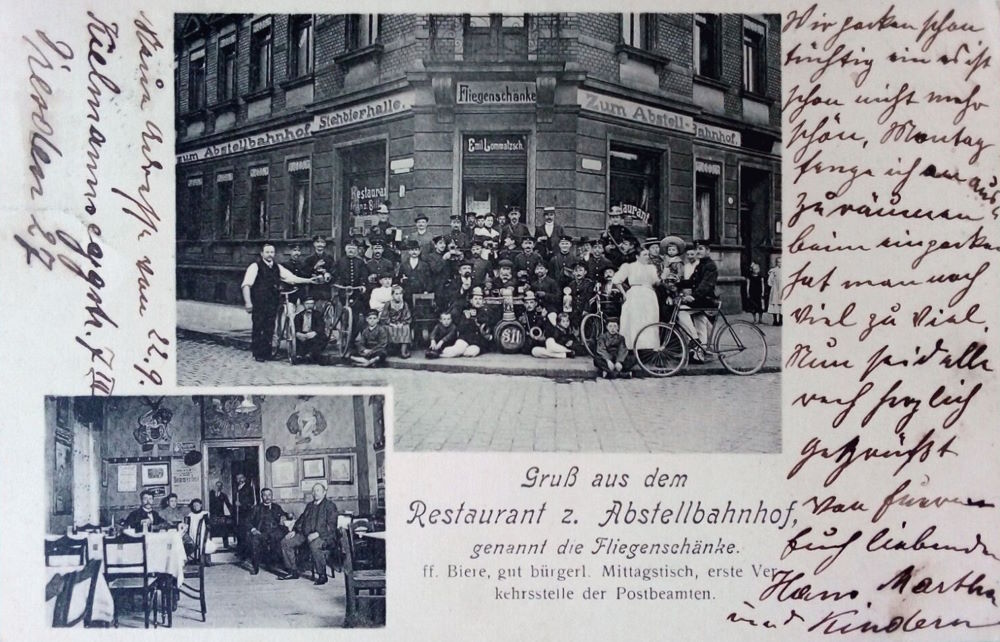 Fliegenschänke
Zum Abstellbahnhof. Stehbierhalle.
Zum Abstell-Bahnhof.
Emil Lommatzsch.
Restaurant
Restaurant
311
Gruß aus dem
Restaurant z. Abstellbahnhof,
genannt die Fliegenschänke.
ff. Biere, gut bürgerl. Mittagstisch, erste Ver-
kehrsstelle der Postbeamten.
Meine Adresse vom 22./9.
Kielmannseggstr. 7 III
Dresden 27
Wir packen schon
tüchtig ein es ist
schon nicht mehr
schön, Montag
fange ich an aus
zuräumen
beim einpacken
hat man noch
viel zu viel.
Nun seid alle
recht herzlich
gegrüsst
von Euren
Euch liebenden
Hans Martha
und Kindern